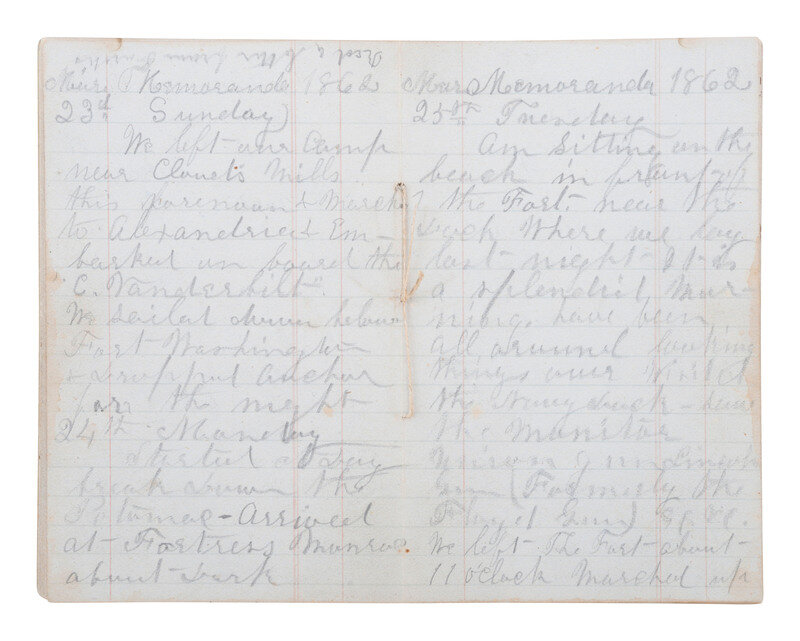 Mar Memoranda 1862
23d Sunday
We left our Camp
near Clouets Mills
this forenoon & March
to Alexandria & Em-
barked on board the
C. Vanderbilt.
We sailed down below
Fort Washington
& dropped anchor
for the night
24th Monday
Started at Day
break down the
Potomac - Arrived
at Fortress Monroe
about dark
Mar Memoranda 1862
25th Tuesday
Am Sitting on the
beach in front of
the Fort. near the
dock Where we lay
last night It is
a splendid Mor-
ning, have been
all around looking
things over
the
the Monitor
Union Gun Lincoln
gun (Formerly the
Floyd Gun) &c. &c.
We left The Fort about
11 oclock Marched up